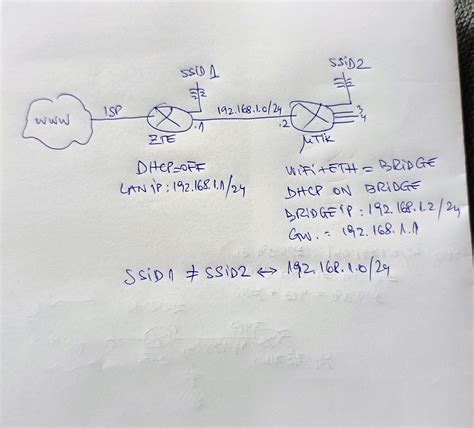 SSID1
SSID2
www
ISP
192.168.1.0/24
.1
.2
3
4
ZTE
µTIK
DHCP=OFF
LAN iP: 192.168.1.1/24
WiFi+ETH = BRIDGE
DHCP ON BRIDGE
BRIDGE iP: 192.168.1.2/24
GW. = 192.168.1.1
SSiD1 ≠ SSiD2 ↔ 192.168.1.0/24